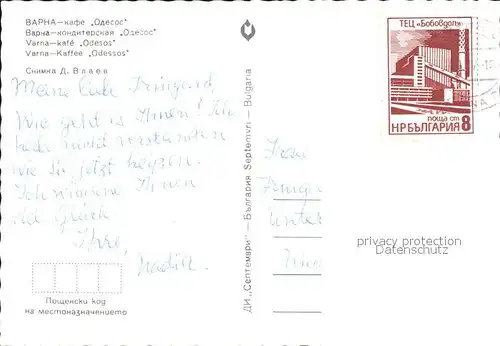 ВАРНА—кафе „Одесос"
Варна—кондитерская „Одесос"
Varna—kafé „Odesos"
Varna—Kaffee „Odessos"
Снимка Д. Влаев
Meine liebe Irmgard,
Wie geht es Ihnen! Ich
habe nicht verstanden
wie Sie jetzt heissen.
Ich wünsche Ihnen
viel Glück
Ihre
Nadia
Пощенски код
на местоназначението
ДИ „Септември" — България Septemvri — Bulgaria
ТЕЦ „Бобовдол"
поща ст
НРБЪЛГАРИЯ 8
Frau
privacy protection
Datenschutz